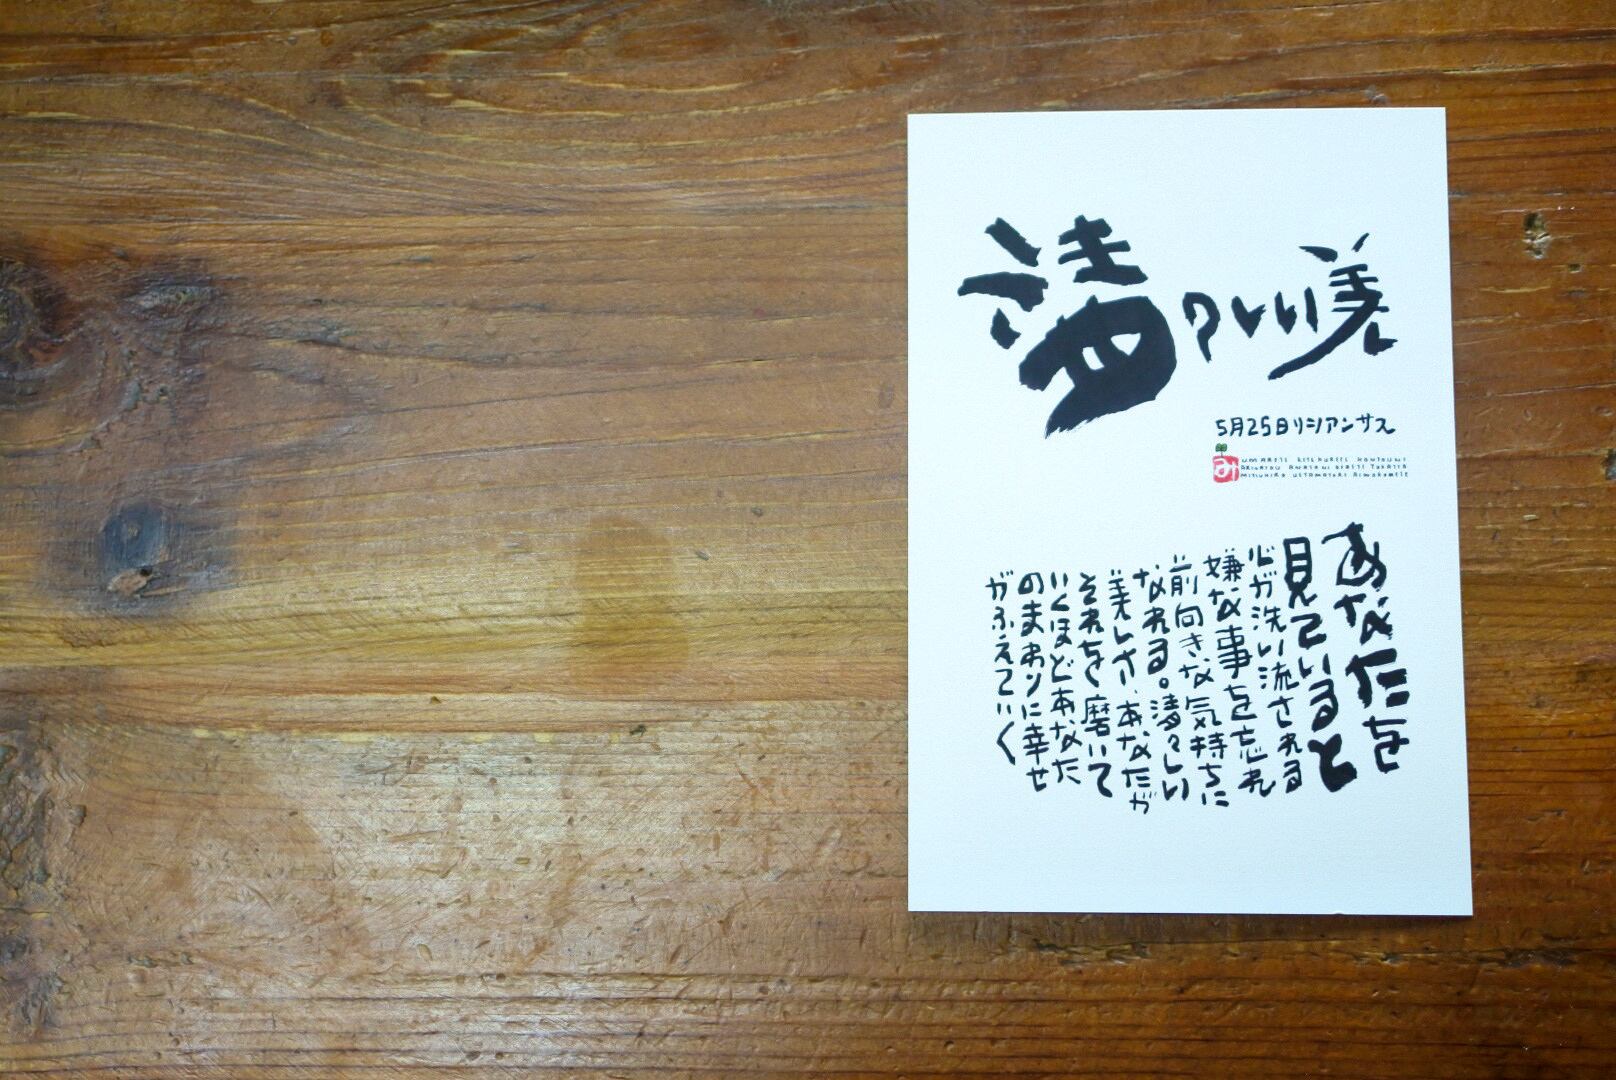 清々しい美
5月25日リシアンサス
み
UMARETE KITEKURETE HONTOUNI
ARIGATOU ANATANI DEAETE YOKATTA
あなたを
見ていると
心が洗い流される
嫌な事を忘れ
前向きな気持ちに
なれる。清々しい
美しさ、あなたが
それを磨いて
いくほどあなた
のまわりに幸せ
がふえていく